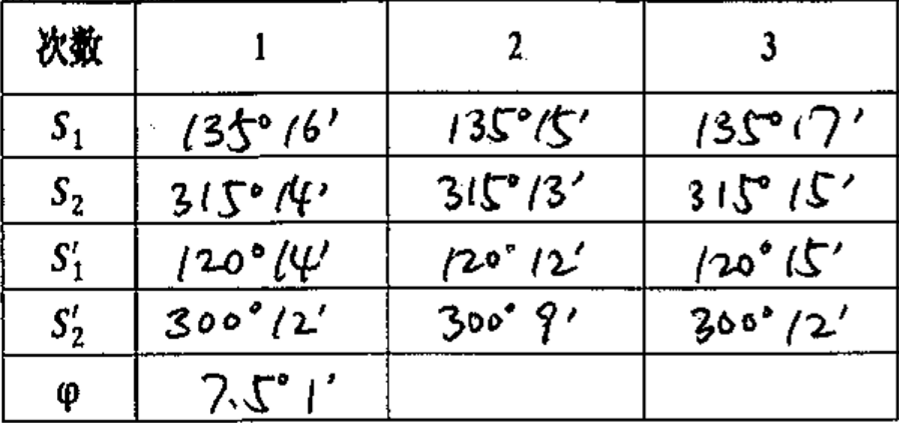 次数 1 2 3
S₁ 135°16′ 135°15′ 135°17′
S₂ 315°14′ 315°13′ 315°15′
S′₁ 120°14′ 120°12′ 120°15′
S′₂ 300°12′ 300°9′ 300°12′
φ 7.5°1′